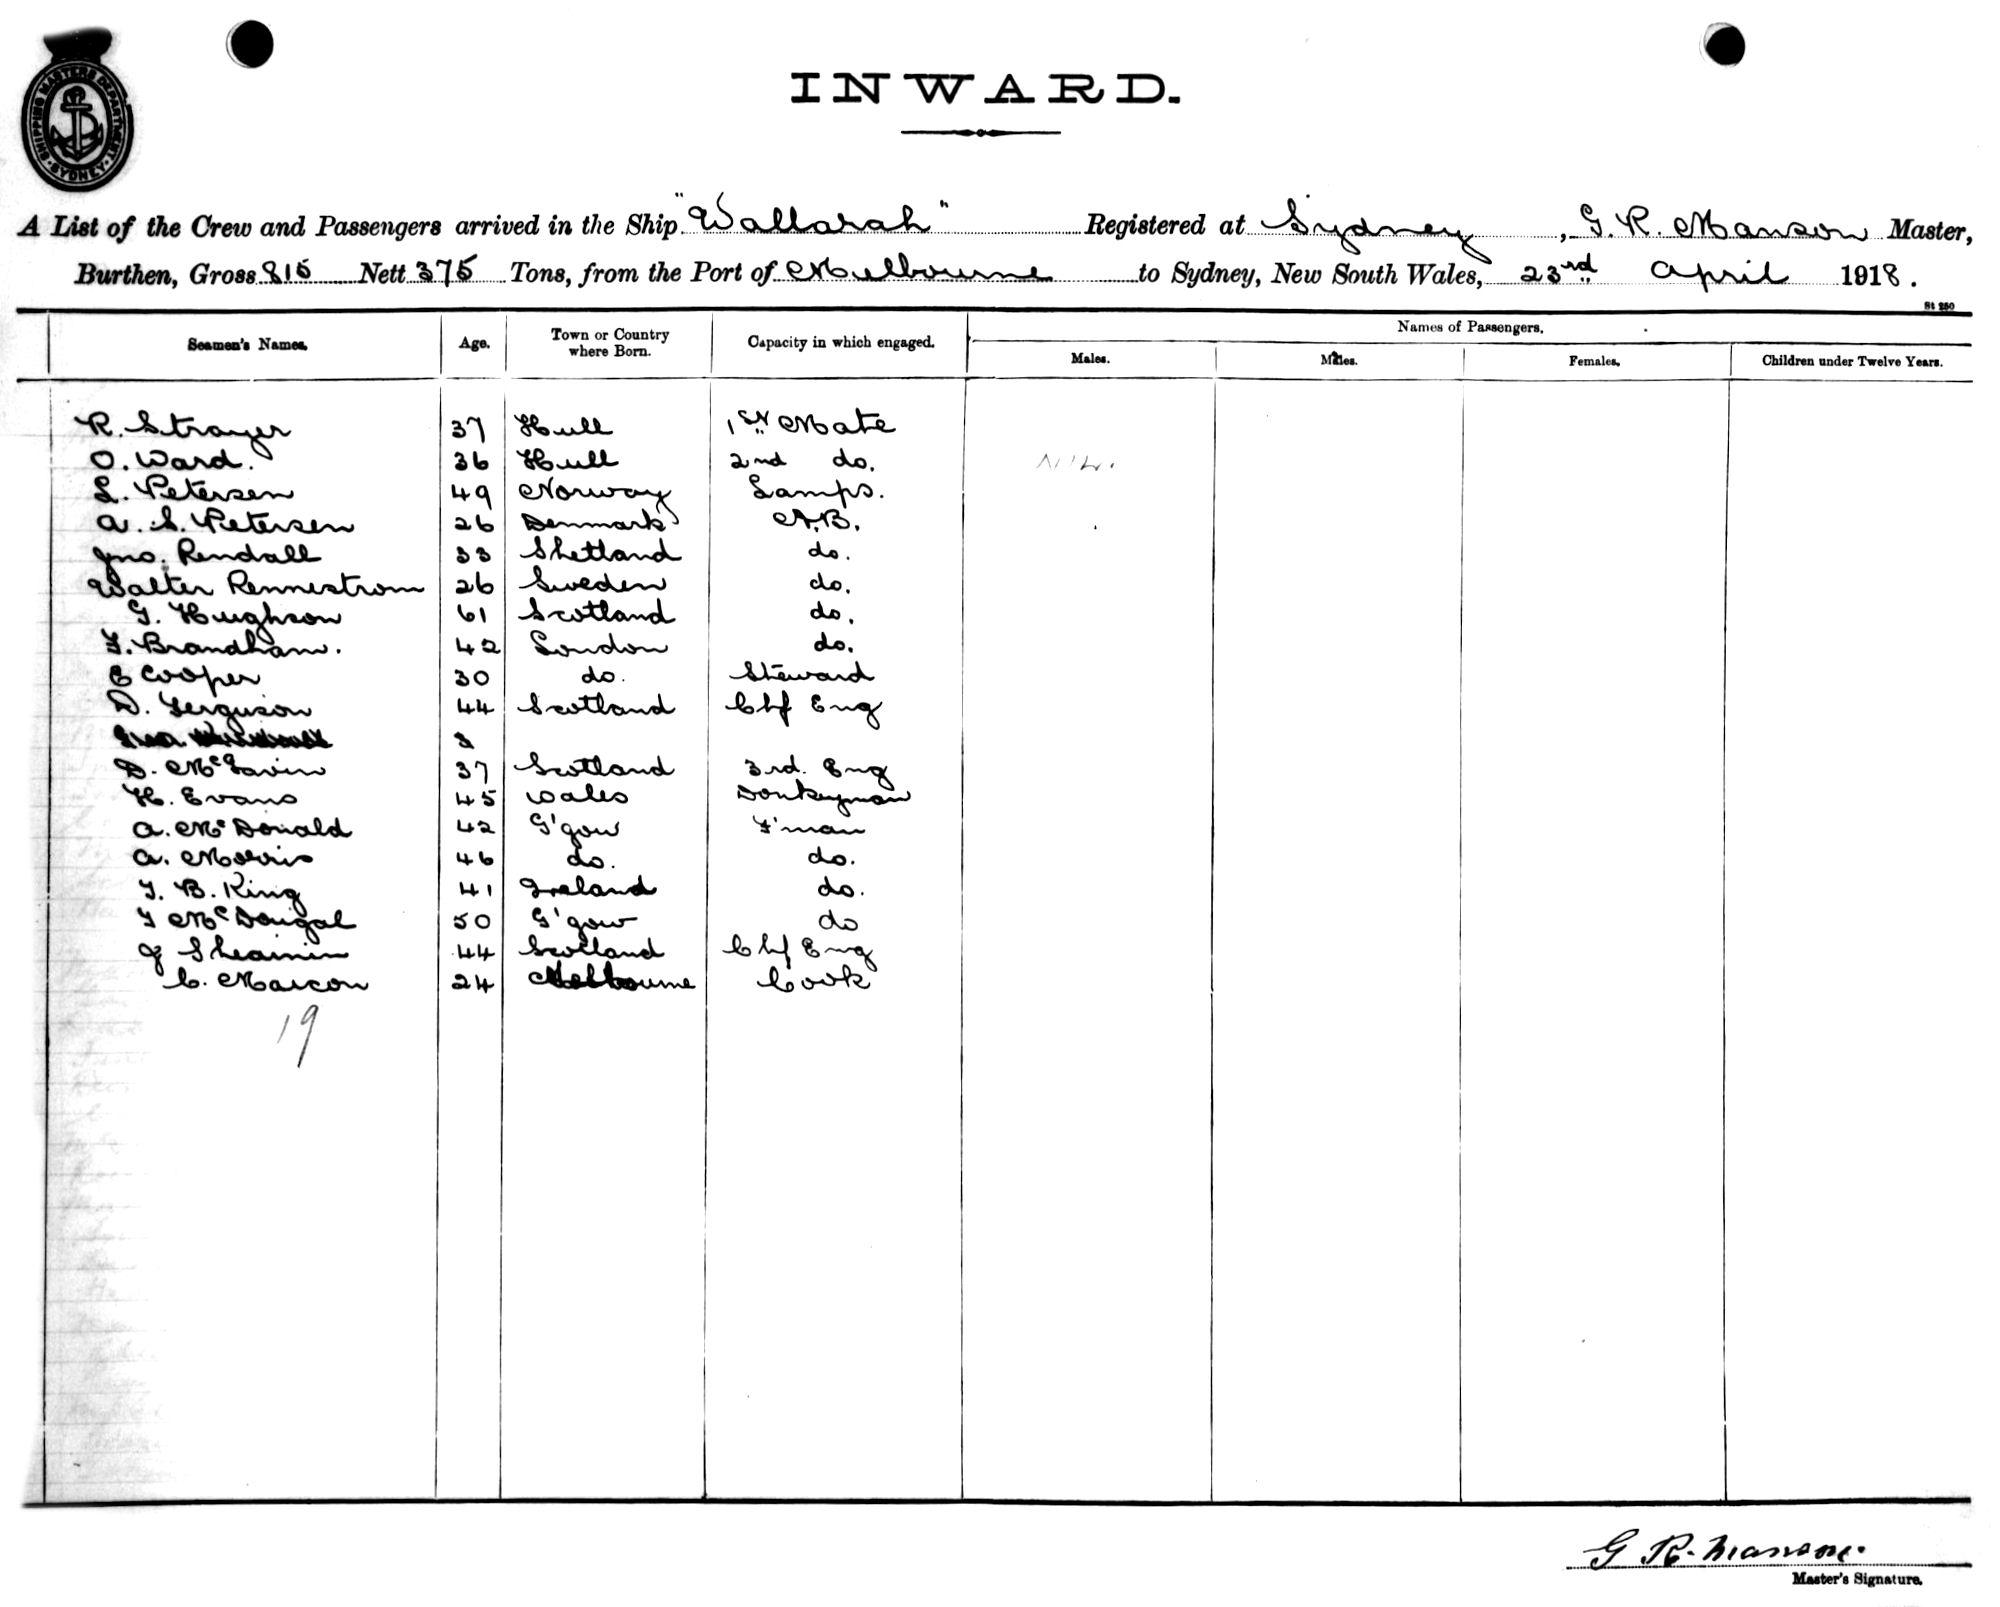 SHIPPING MASTERS DEPARTMENT
SYDNEY
INWARD.
A List of the Crew and Passengers arrived in the Ship "Wallarah" Registered at Sydney, G. R. Manson Master,
Burthen, Gross 815 Nett 375 Tons, from the Port of Melbourne to Sydney, New South Wales, 23rd April 1918.
St 250
Seamen's Names. Age. Town or Country where Born. Capacity in which engaged. Names of Passengers.
Males. Males. Females. Children under Twelve Years.
R. Strayer 37 Hull 1st Mate
O. Ward. 36 Hull 2nd do. Nil.
L. Petersen 49 Norway Lamps.
A. S. Petersen 26 Denmark A.B.
Jno. Rendall 33 Shetland do.
Walter Rennestrom 26 Sweden do.
G. Hughson 61 Scotland do.
F. Brandham. 42 London do.
E Cooper 30 do. Steward
D. Ferguson 44 Scotland Chf Eng
3
D. McGavin 37 Scotland 3rd. Eng
H. Evans 45 Wales Donkeyman
A. McDonald 42 G'gow F'man
A. Morris 46 do. do.
T. B. King 41 Ireland do.
T McDougal 50 G'gow do
J 44 Scotland Chf Eng
C. Marcon 24 Melbourne Cook
19
G R. Manson.
Master's Signature.